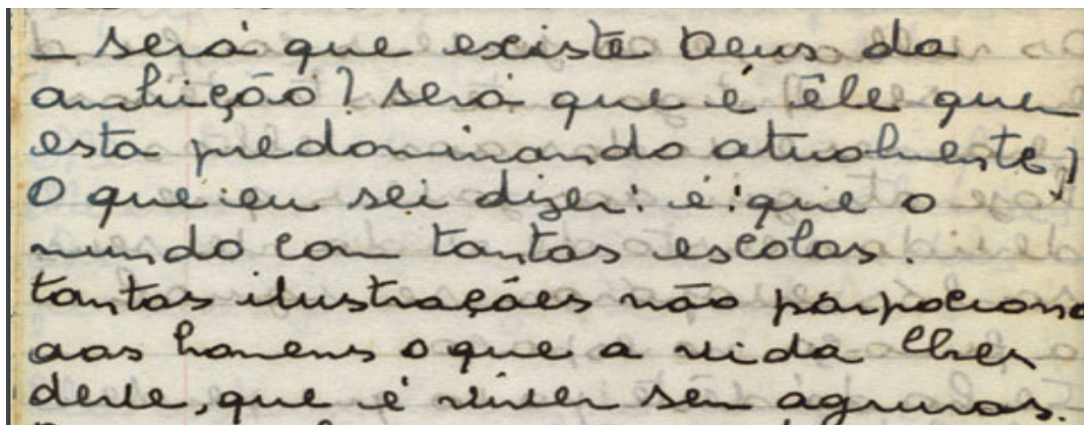 – será que existe Deus da
ambição? será que é êle quem
esta predominando atualmente?
O que eu sei dizer: é: que o
mundo com tantas escolas.
tantas ilustrações não porpociona
aos homens o que a vida lhes
deve, que é viver sem agruras.